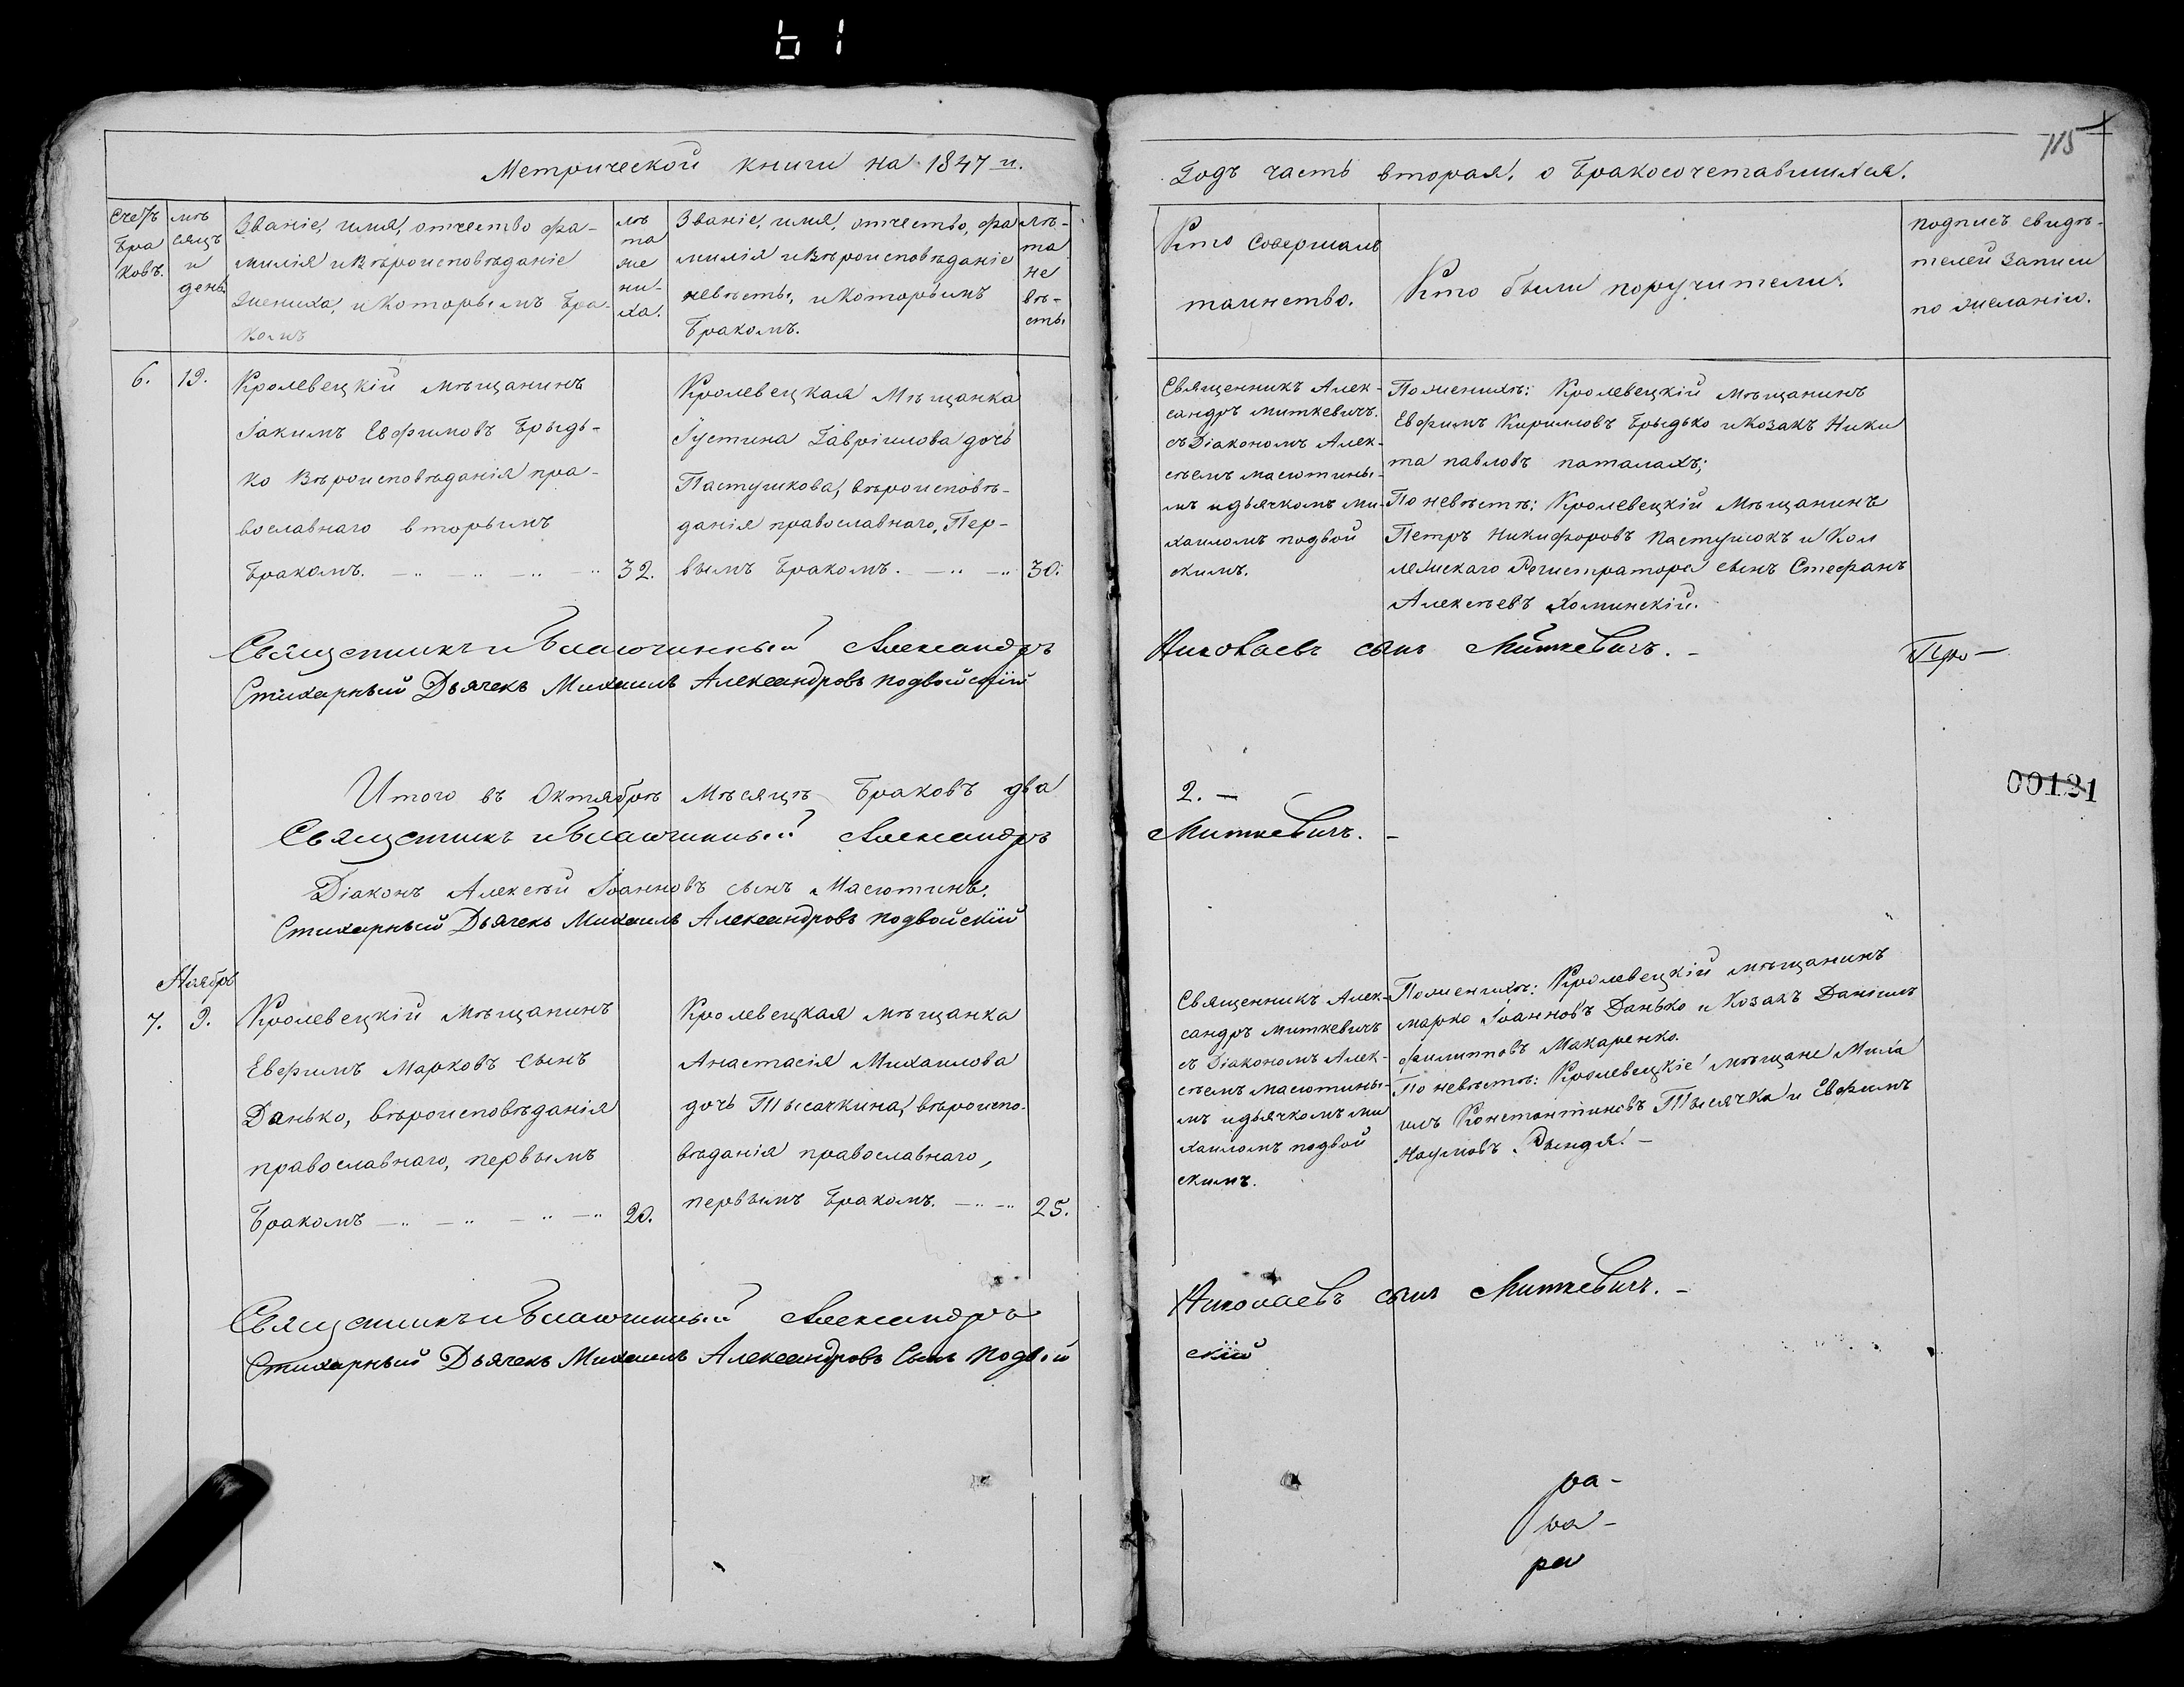 61
115
Метрической книги на 1847 й.
Годъ часть вторая, о бракосочетавшихся.
Счетъ бра ковъ.
мѣ сяцъ и день
Званіе, имя, отчество фа-
милія и вѣроисповѣданіе
жениха, и которымъ бра-
комъ
лѣ та же ни- ха.
Званіе, имя, отчество, фа
милія и вѣроисповѣданіе
невѣсты, и которымъ
бракомъ.
лѣ- та не вѣ- сты
Кто совершалъ
таинство.
Кто были поручители.
подпись свидѣ-
телей записи
по желанію.
6.
19.
Кролевецкій мѣщанинъ
Іакимъ Евфимовъ Брыдь-
ко вѣроисповѣданія пра-
вославнаго вторымъ
бракомъ.
32.
Кролевецкая мѣщанка
Іустина Гавріилова дочь
Пастушкова, вѣроисповѣ-
данія православнаго, Пер-
вымъ бракомъ.
30.
Священникъ Алек-
сандръ Миткевичъ.
съ Діакономъ Алек-
сѣемъ Масютины-
мъ и дьячкомъ Ми-
хаиломъ подвой
скимъ.
По женихѣ: Кролевецкій мѣщанинъ
Евфимъ Кириловъ Брыдько и козакъ Ники
та павловъ паталахъ;
По невѣстѣ: Кролевецкій мѣщанинъ
Петръ Никифоровъ Пастушокъ и Кол
лежскаго Регистратора сынъ Стефанъ
Алексѣевъ Хоминскій.
Священникъ и Благочинный Александръ
Николаевъ сынъ Миткевичъ.
Стихарный Дьячекъ Михаилъ Александровъ подвойскій
Итого въ Октябрѣ мѣсяцѣ браковъ два
2.
00121
Священникъ и Благочинный Александръ
Миткевичъ.
Діаконъ Алексѣй Іоанновъ сынъ Масютинъ.
Стихарный Дьячекъ Михаилъ Александровъ подвойскій
Ноябрь
7.
9.
Кролевецкій мѣщанинъ
Евфимъ Марковъ сынъ
Данько, вѣроисповѣданія
православнаго, первымъ
бракомъ
20.
Кролевецкая мѣщанка
Анастасія Михаилова
дочь Тысячкина, вѣроиспо-
вѣданія православнаго,
первымъ бракомъ.
25.
Священникъ Алек-
сандръ Миткевичъ
съ Діакономъ Алек-
сѣемъ Масютины-
мъ и дьячкомъ Ми
хаиломъ подвой
скимъ.
По женихѣ: Кролевецкій мѣщанинъ
марко Іоанновъ Данько и козакъ Даніилъ
филипповъ Макаренко.
По невѣстѣ: Кролевецкіе мѣщане Миха
илъ Константиновъ Тысячка и Евфимъ
Наумовъ Рындя.
Священникъ и Благочинный Александръ
Николаевъ сынъ Миткевичъ.
Стихарный Дьячекъ Михаилъ Александровъ Сынъ подвой
скій
ра-
ра-
ра